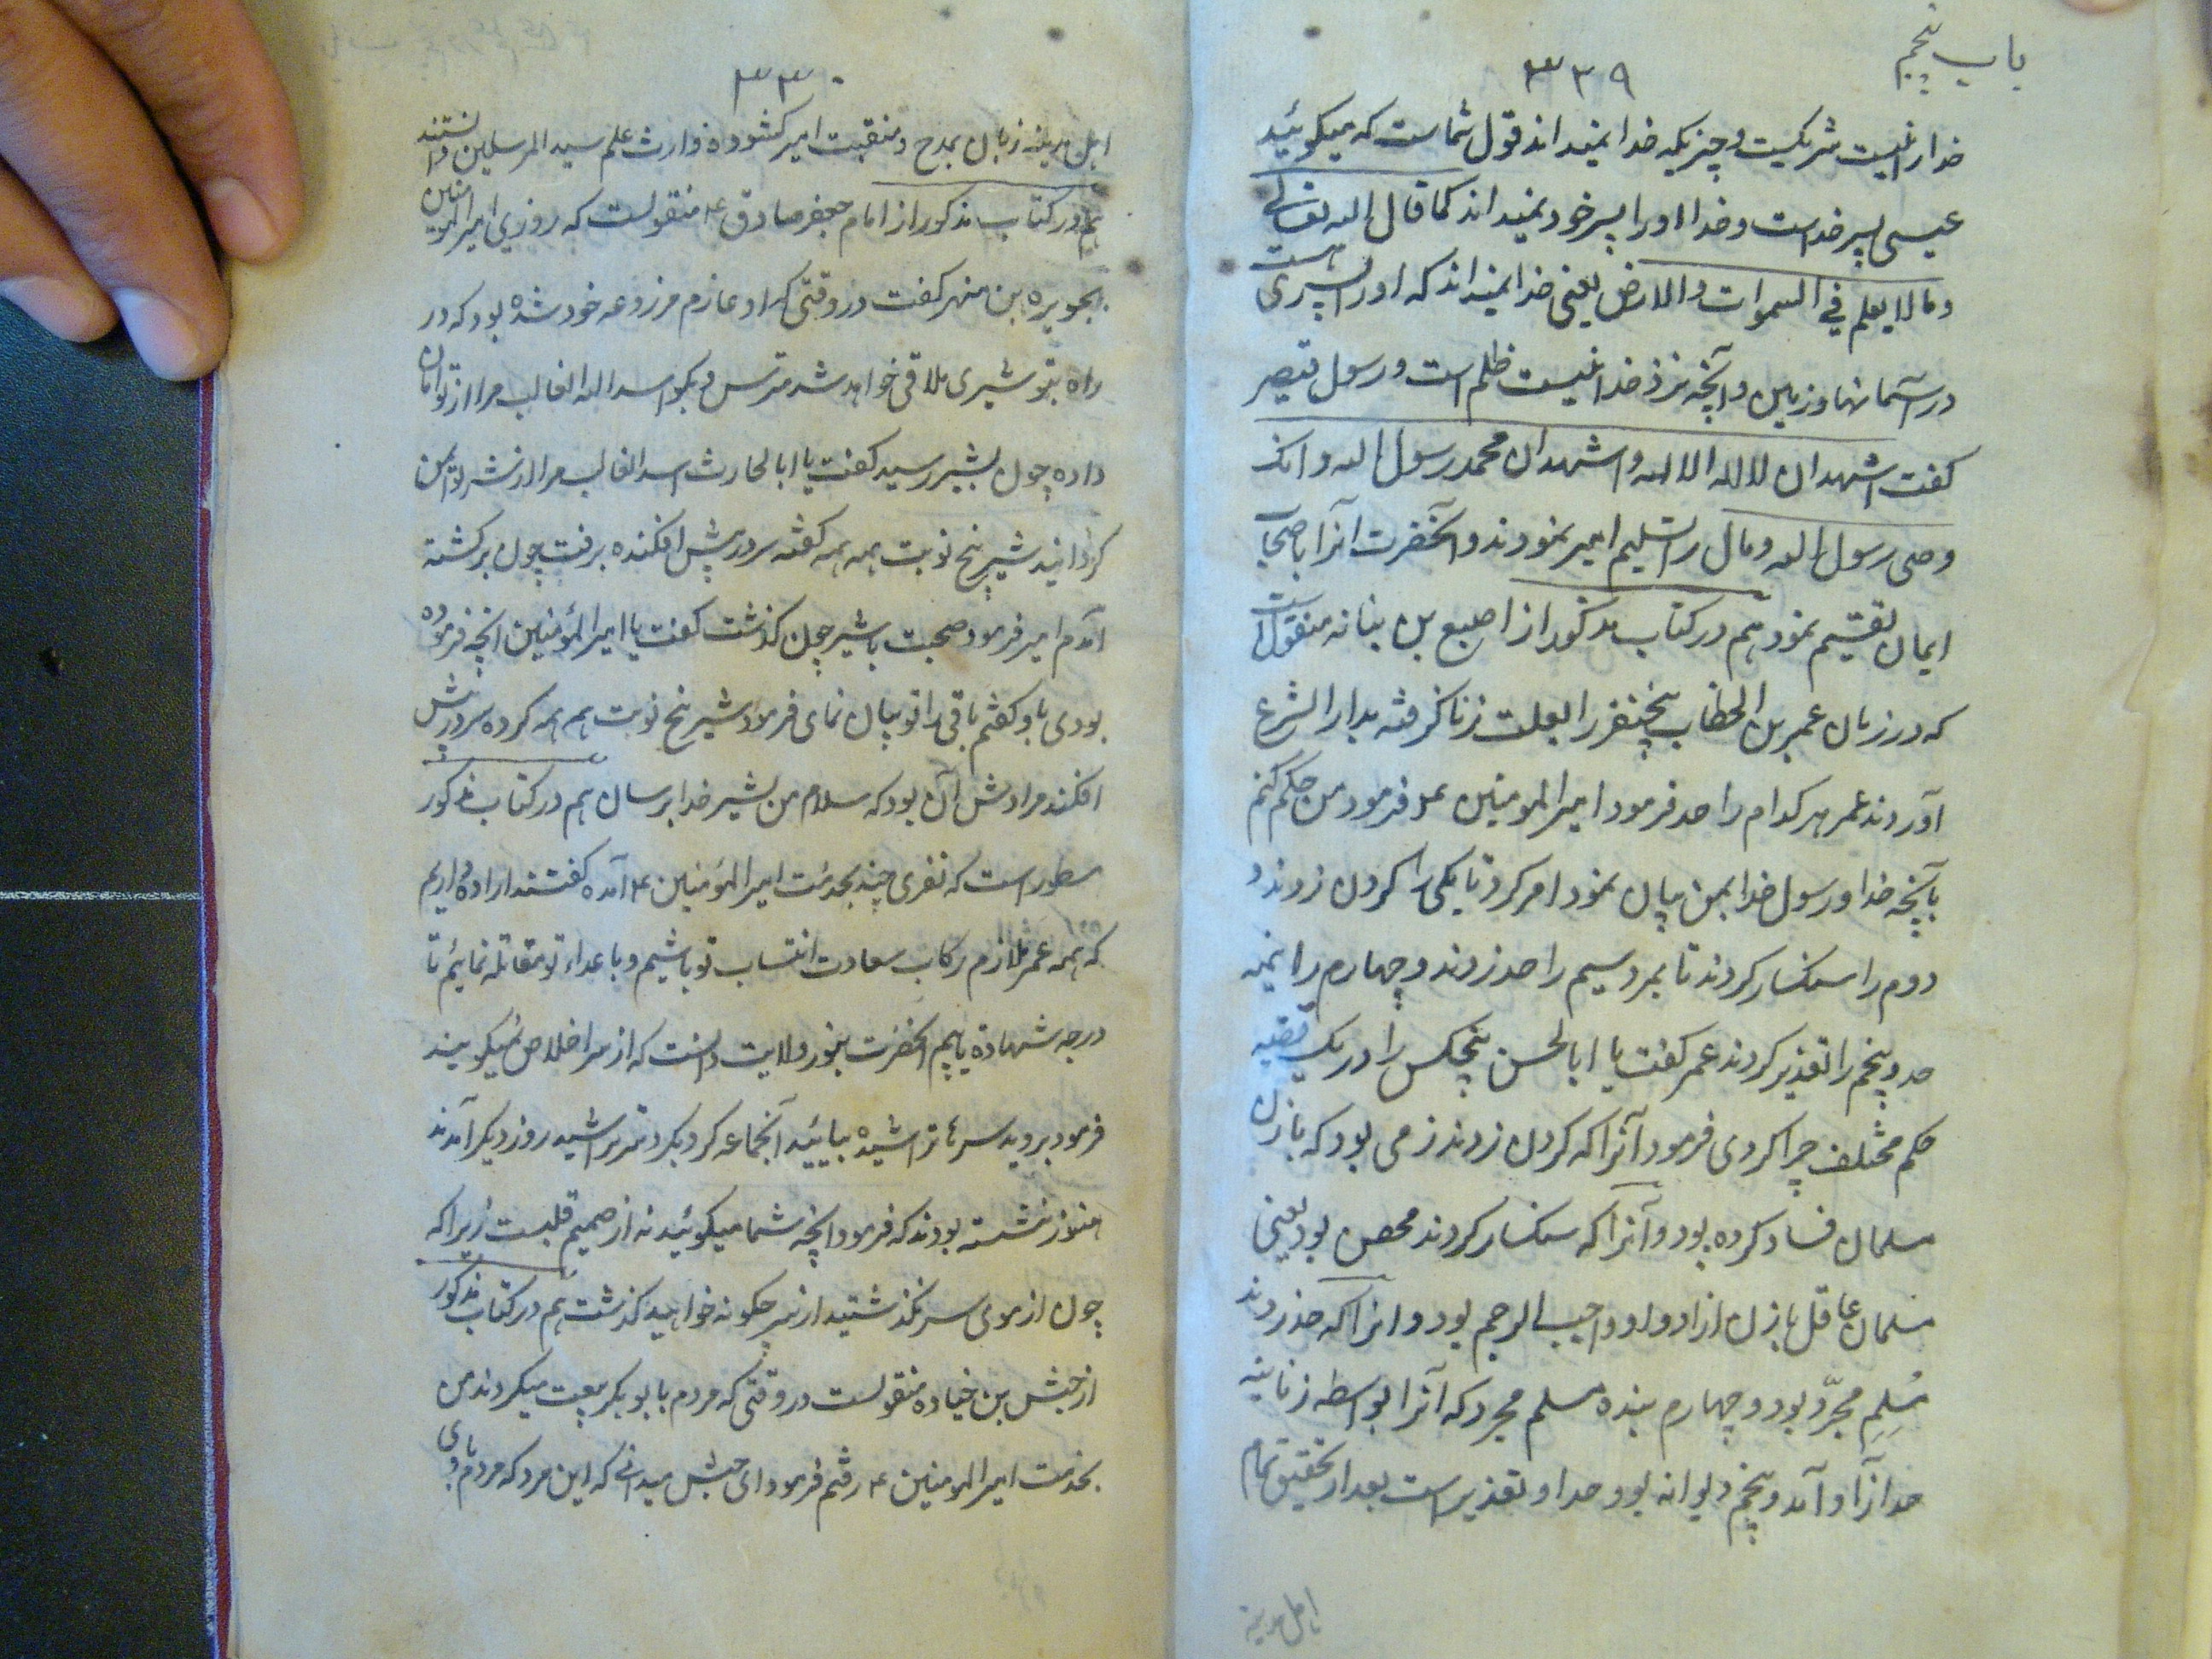 باب پنجم
٣٣٩
خدا را نیست شریکیست و چیزیکه خدا نمیداند قول شماست که میگوئید
عیسی پسر خداست و خدا او را پسر خود نمیداند کما قال الله تعالی
و ما لا یعلم فی السموات و الارض یعنی خدا نمیداند که او را پسری است
در آسمانها و زمین و آنچه نزد خدا نیست ظلم است و رسول قیصر
کفت اشهد ان لا اله الا الله و اشهد ان محمد رسول الله و انک
وصی رسول الله و مال را تسلیم امیر نمودند و آنحضرت آنرا باصحاب
ایمان تقسیم نمود هم در کتاب مذکور از اصبغ بن نباته منقول است
که در زمان عمر بن الخطاب پنجنفر را بعلت زنا گرفته بدار الشرع
آوردند عمر هر کدام را حد فرمود امیر المومنین ع فرمود من حکم کنم
بآنچه خدا و رسول خدا بمن بیان نمود امر کرد تا یکی را کردن زدند و
دوم را سنکسار کردند تا بمرد و سیم را حد زدند و چهارم را نیمه
حد و پنجم را تعذیر کردند عمر کفت یا ابا الحسن پنجکس را در یک قضیه
حکم مختلف چرا کردی فرمود آنرا که کردن زدند زمی بود که با زن
مسلمان فساد کرده بود و آنرا که سنکسار کردند محصن بود یعنی
مسلمان عاقل با زن ازاد و او واجب الرجم بود و انرا که حد زدند
مسلم مجرّد بود و چهارم بنده مسلم مجرد که آنرا بواسطه زنا نیمه
حد آزاد آمد و پنجم دیوانه بود و حد او تعذیر است بعد از تحقیق تمام
اهل مدینه
٣٣٠
اهل مدینه زبان بمدح و منقبت امیر کشوده وارث علم سید المرسلین دانستند
هم در کتاب مذکور از امام جعفر صادق ع منقولست که روزی امیر المومنین
بجویره بن منهر کفت در وقتی که او عازم مزروعه خود شده بود که در
راه بتو شیری ملاقی خواهد شد مترس و بکو اسد الله الغالب مرا از تو امان
داده چون بشیر رسید کفت یا ابا الحارث اسد الغالب مرا از شر تو ایمن
کردانید شیر پنج نوبت همه همه کفته سر در پیش افکنده برفت چون برکشته
آمدم امیر فرمود صحبت با شیر چون کذشت کفت یا امیر المؤمنین انچه فرموده
بودی باو کفتم باقی را تو بیان نمای فرمود شیر پنج نوبت همهمه کرده سر در پیش
افکند مرادش آن بود که سلام من بشیر خدا برسان هم در کتاب مذکور
مسطور است که نفری چند بخدمت امیر المؤمنین ع آمده کفتند اراده داریم
که همه عمر ملازم رکاب سعادت انتساب تو باشیم و با عداء تو مقاتله نمائیم تا
درجه شهادة یابیم آنحضرت بنور ولایت دانست که از سر اخلاص نمیکویند
فرمود بروید سرها تراشیده بیایید آنجماعه کرد یکرد سر تراشیده روز دیکر آمدند
هنوز ننشسته بودند که فرمود انچه شما میکوئید نه از صمیم قلبست زیرا که
چون از موی سر نکذشتید از سر چکونه خواهید کذشت هم در کتاب مذکور
از حبش بن خباده منقولست در وقتی که مردم با بوبکر بیعت میکردند من
بخدمت امیر المومنین ع رفتم فرمود ای حبش میدانی که این مرد که مردم با وی